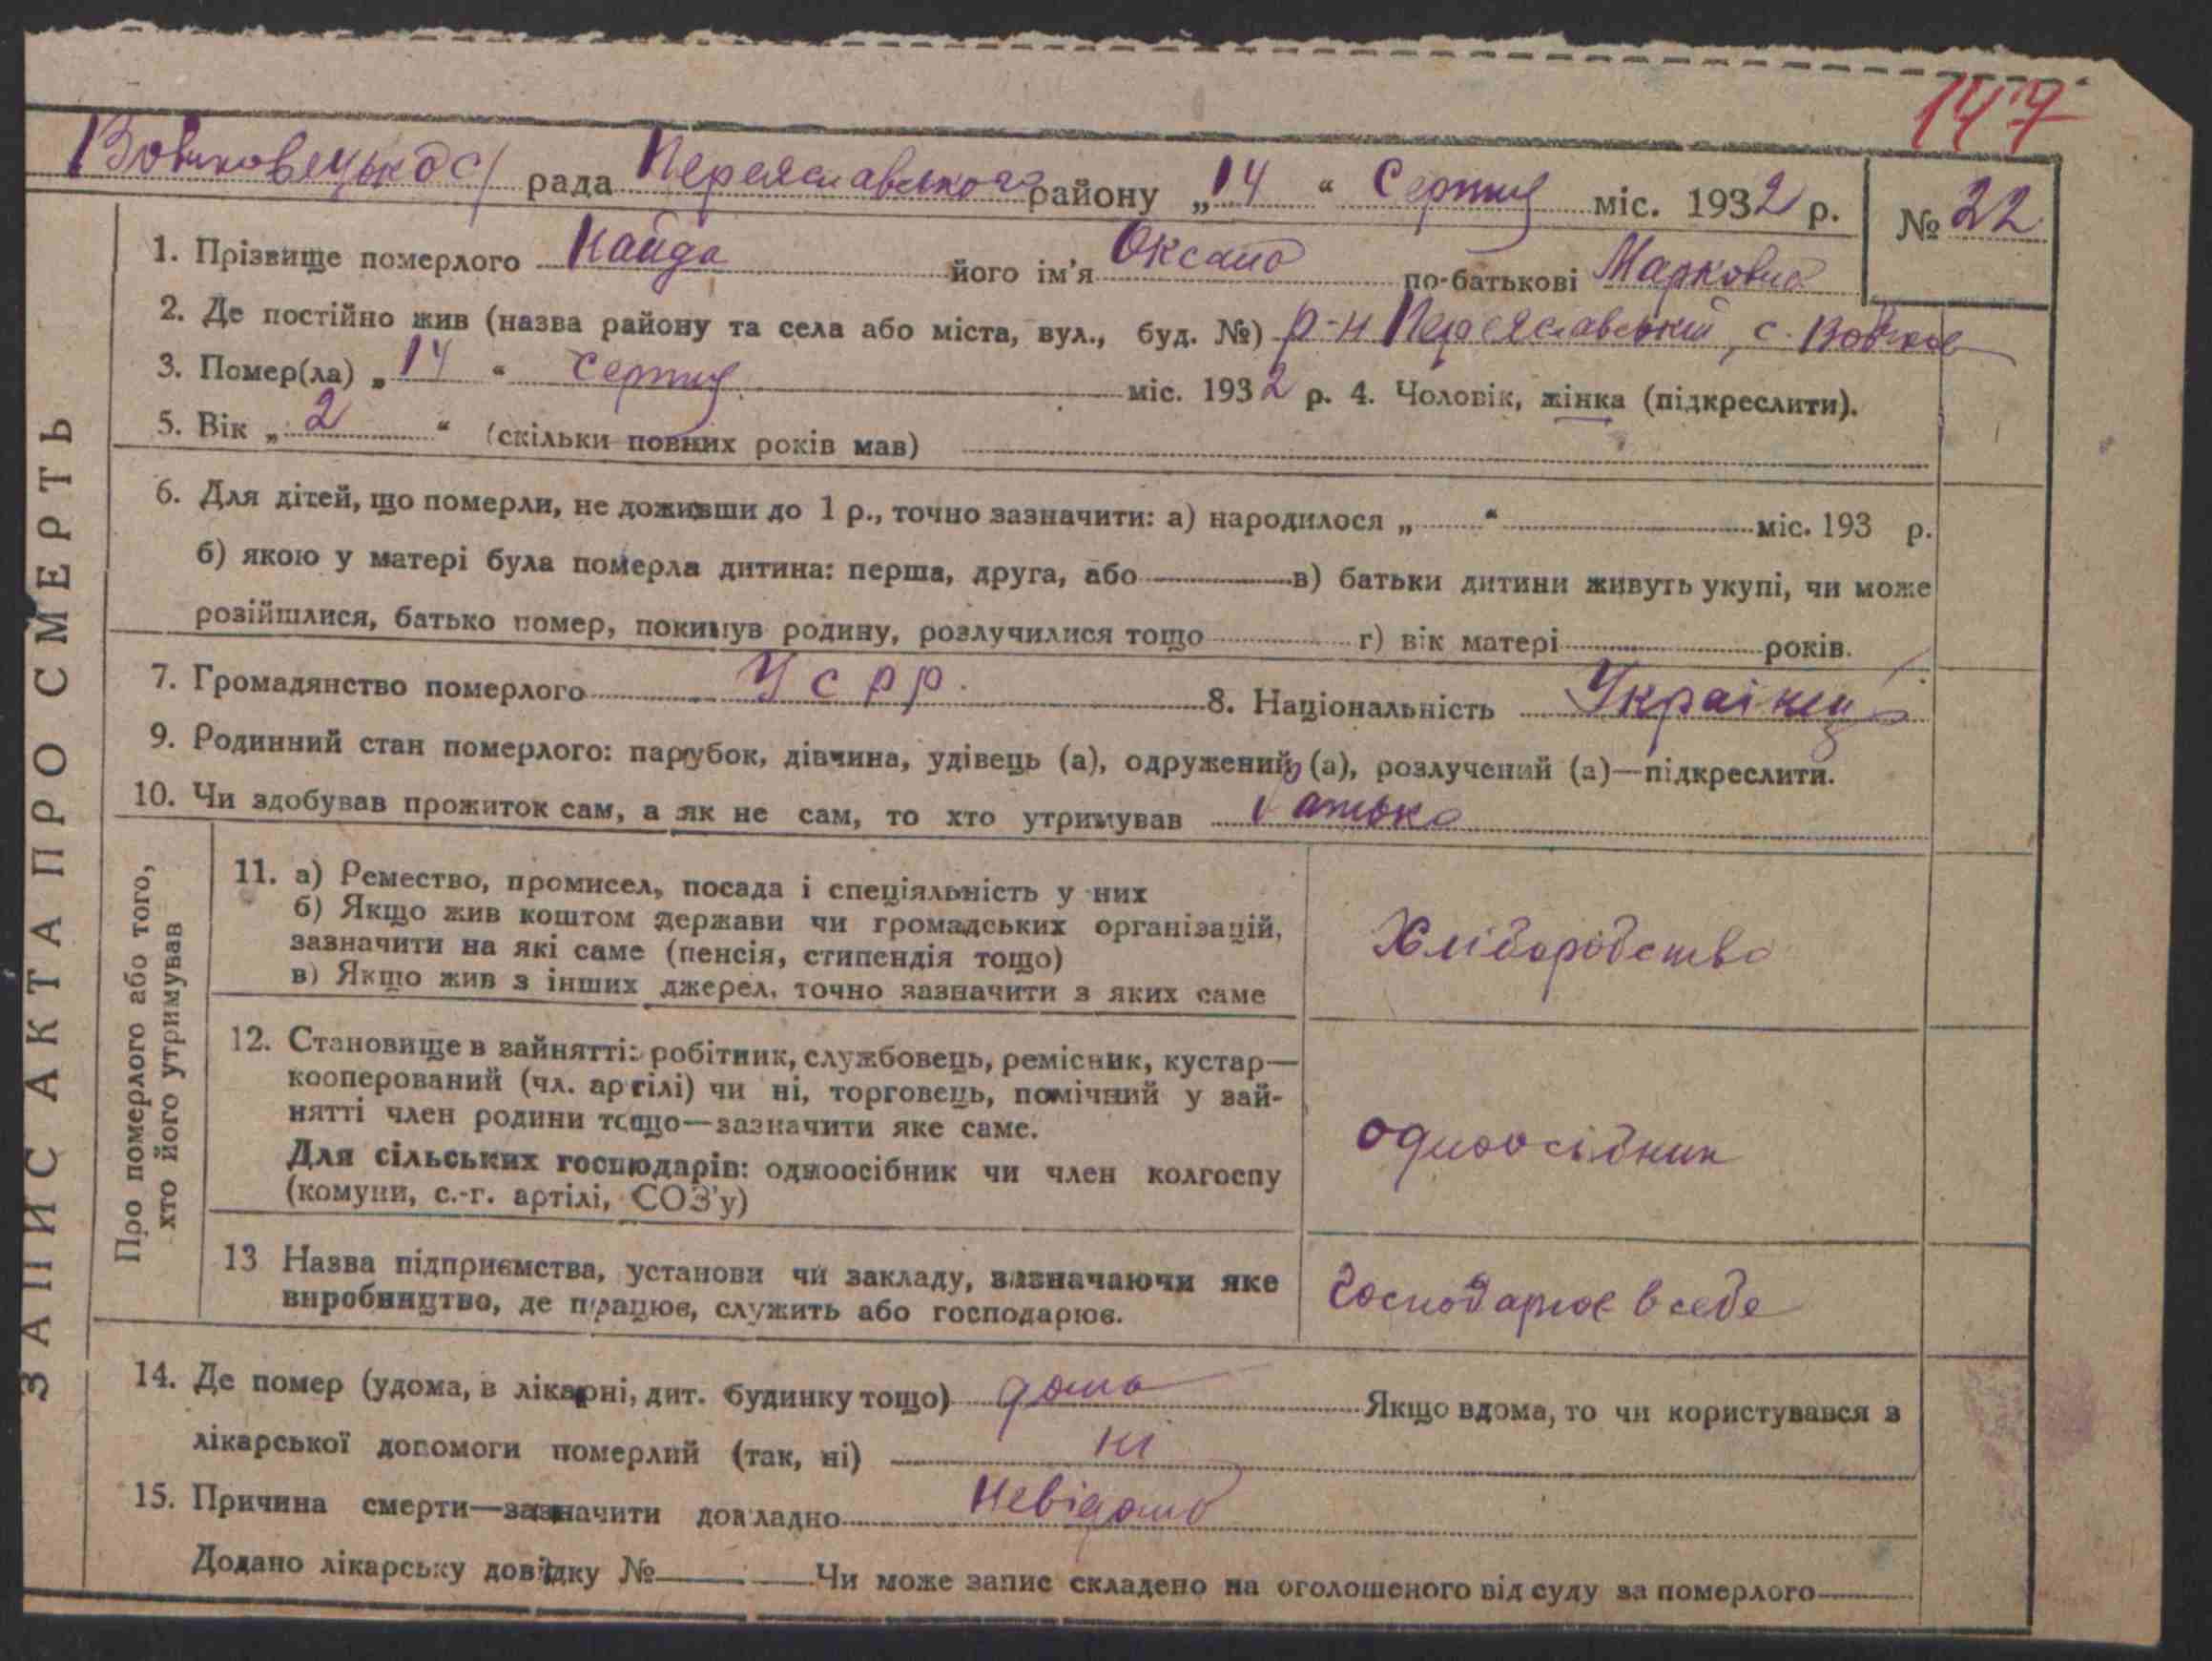 147
Вовчковецька с/ рада Переяславського району „14“ Серпня міс. 1932 р. № 22
1. Прізвище померлого Найда його ім'я Оксана по-батькові Марковна
2. Де постійно жив (назва району та села або міста, вул., буд. №) р-н Переяславський, с. Вовчков
3. Помер(ла) „14“ серпня міс. 1932 р. 4. Чоловік, жінка (підкреслити).
5. Вік „2“ (скільки повних років мав)
6. Для дітей, що померли, не доживши до 1 р., точно зазначити: а) народилося „ “ міс. 193 р.
б) якою у матері була померла дитина: перша, друга, або в) батьки дитини живуть укупі, чи може
розійшлися, батько помер, покинув родину, розлучилися тощо г) вік матері років.
7. Громадянство померлого УСРР. 8. Національність Українц
9. Родинний стан померлого: парубок, дівчина, удівець (а), одружений (а), розлучений (а)—підкреслити.
10. Чи здобував прожиток сам, а як не сам, то хто утримував батько
ЗАПИС АКТА ПРО СМЕРТЬ
Про померлого або того,
хто його утримував
11. а) Ремество, промисел, посада і спеціяльність у них
б) Якщо жив коштом держави чи громадських організацій,
зазначити на які саме (пенсія, стипендія тощо)
в) Якщо жив з інших джерел, точно зазначити з яких саме
Хліборобство
12. Становище в зайнятті: робітник, службовець, ремісник, кустар—
кооперований (чл. артілі) чи ні, торговець, помічний у зай-
нятті член родини тощо—зазначити яке саме.
Для сільських господарів: одноосібник чи член колгоспу
(комуни, с.-г. артілі, СОЗ'у)
одноосібник
13 Назва підприємства, установи чи закладу, зазначаючи яке
виробництво, де працює, служить або господарює.
Господарює в себе
14. Де помер (удома, в лікарні, дит. будинку тощо) дома Якщо вдома, то чи користувався з
лікарської допомоги померлий (так, ні) ні
15. Причина смерти—зазначити докладно Невідомо
Додано лікарську довідку № Чи може запис складено на оголошеного від суду за померлого